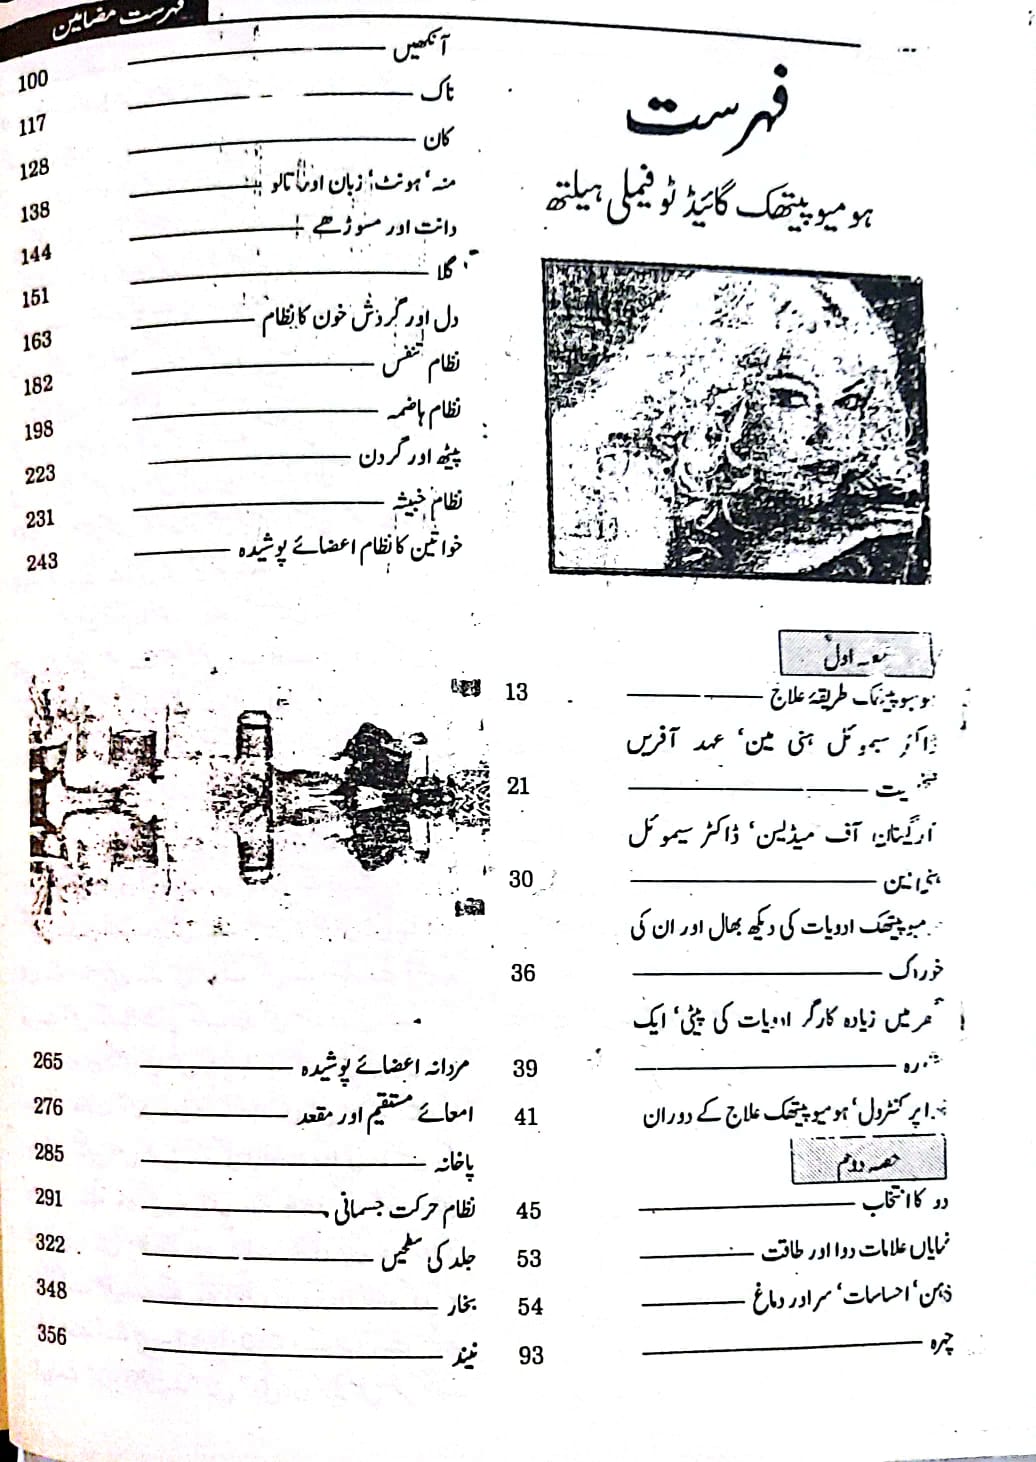 فہرست مضامین
فہرست
ہومیوپیتھک گائیڈ ٹو فیملی ہیلتھ
اول
طریقۂ علاج 13
سیموئل ہنی مین، عہد آفریں
21
آف میڈیسن، ڈاکٹر سیموئل
30
ادویات کی دیکھ بھال اور ان کی
خوراک 36
میں زیادہ کارگر ادویات کی پیٹی، ایک
39
کنٹرول، ہومیوپیتھک علاج کے دوران 41
حصہ دوم
کا انتخاب 45
نمایاں علامات دوا اور طاقت 53
ذہن، احساسات، سر اور دماغ 54
چہرہ 93
آنکھیں 100
ناک 117
کان 128
منہ، ہونٹ، زبان اور تالو 138
دانت اور مسوڑھے 144
گلا 151
دل اور گردش خون کا نظام 163
نظام تنفس 182
نظام ہاضمہ 198
پیٹھ اور گردن 223
نظام خبیثہ 231
خواتین کا نظام اعضائے پوشیدہ 243
مردانہ اعضائے پوشیدہ 265
امعائے مستقیم اور مقعد 276
پاخانہ 285
نظام حرکت جسمانی 291
جلد کی سطحیں 322
بخار 348
نیند 356